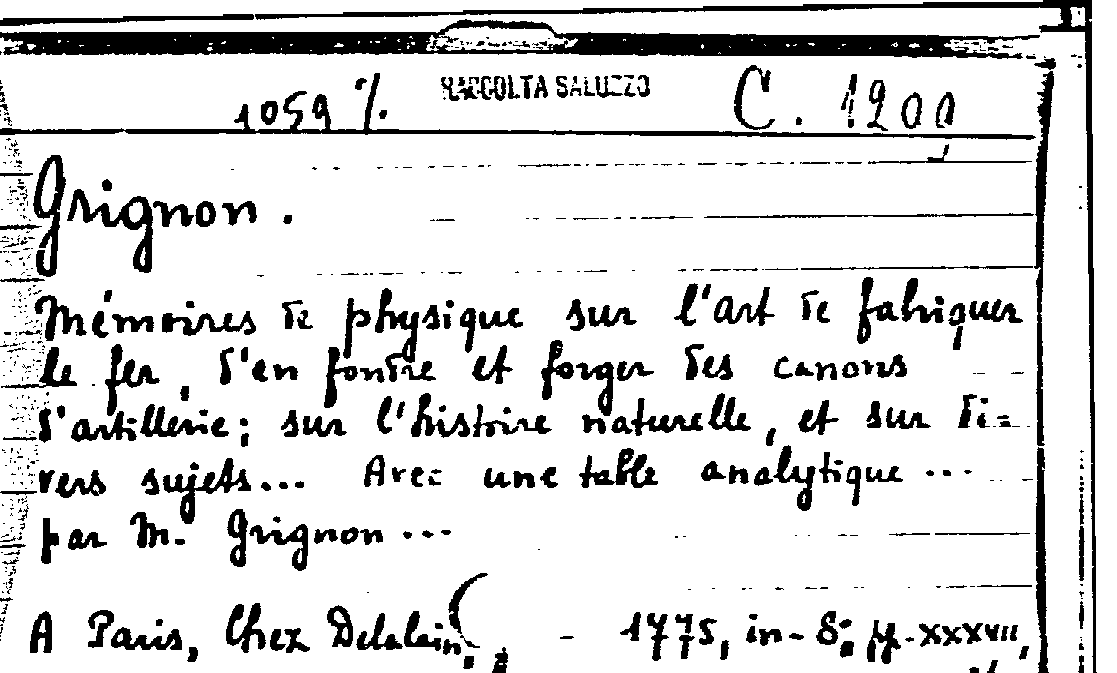 1059 %. RACCOLTA SALUZZO C. 1200
Grignon.
Mémoires de physique sur l'art de fabriquer
le fer, d'en fondre et forger des canons
d'artillerie; sur l'histoire naturelle, et sur di=
vers sujets... Avec une table analytique ...
par M. Grignon ...
A Paris, Chez Delalain, - 1775, in-8°; pp. XXXVII,